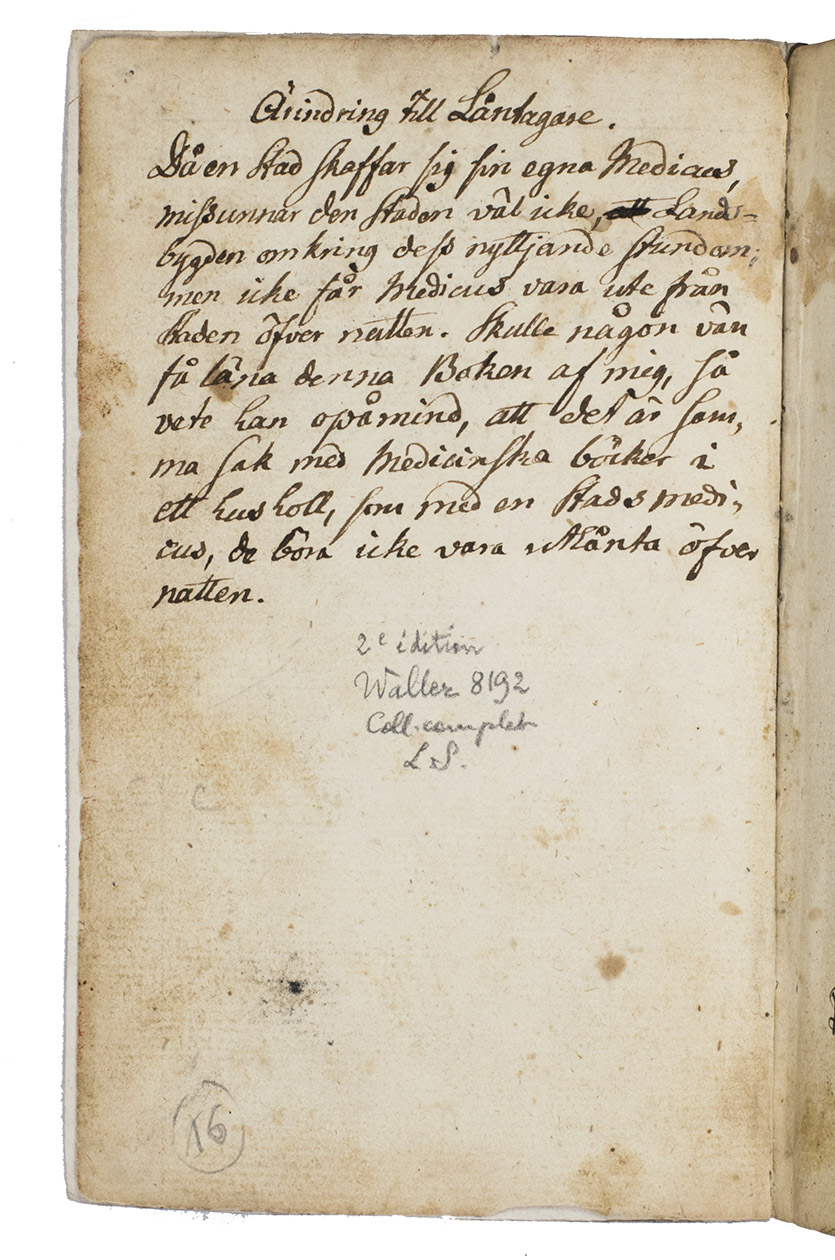 Ärindring till Låntagare.
Då en Stad skaffar sig sin egna Medicus,
missunnar den Staden väl icke, att Lands-
bygden omkring dess nyttjande stundom;
men icke får Medicus vara ute från
staden öfver natten. Skulle någon vän
få låna denna Boken af mig, så
vete han opåmind, att det är sam,
ma sak med Medicinska böcker i
ett hushåll, som med en Stads medi,
cus, de böra icke vara utlånta öfver
natten.
2e édition
Waller 8192
Coll. complet
L.S.
16